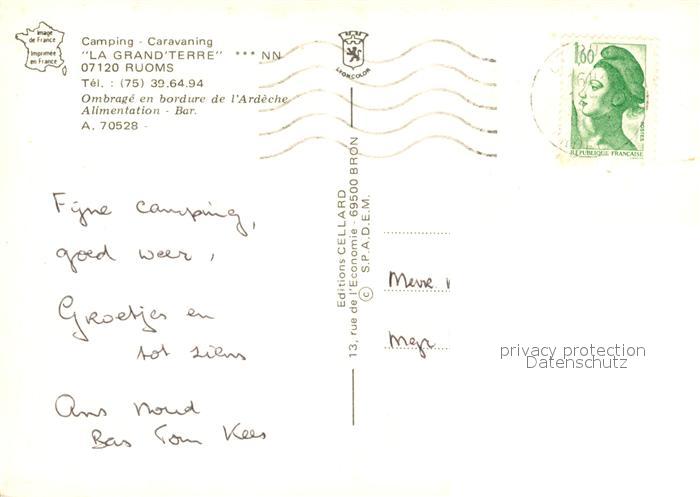 Image
de France
Imprimée
en France
Camping - Caravaning
"LA GRAND'TERRE" *** NN
07120 RUOMS
Tél. : (75) 39.64.94
Ombragé en bordure de l'Ardèche
Alimentation - Bar.
A. 70528 -
LYONCOLOR
1,60
POSTES
REPUBLIQUE FRANÇAISE
Editions CELLARD
13, rue de l'Economie - 69500 BRON
© S.P.A.D.E.M.
Fijne camping,
goed weer,
Groetjes en
tot ziens
Ans Ruud
Bas Tom Kees
Mevr
privacy protection
Datenschutz